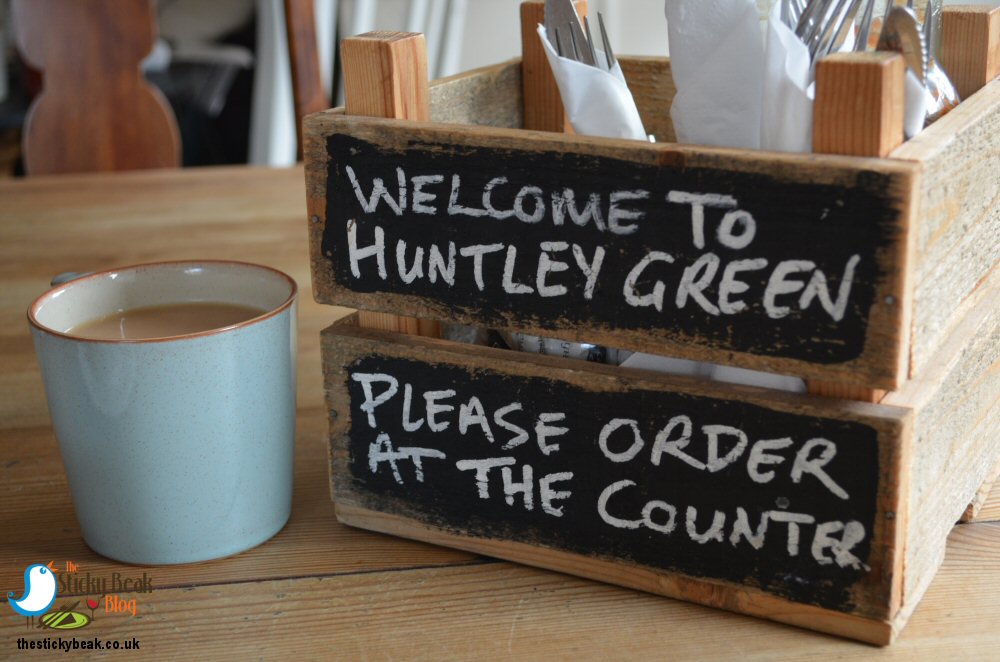 WELCOME TO
HUNTLEY GREEN
PLEASE ORDER
AT THE COUNTER
The
Sticky Beak
Blog
thestickybeak.co.uk